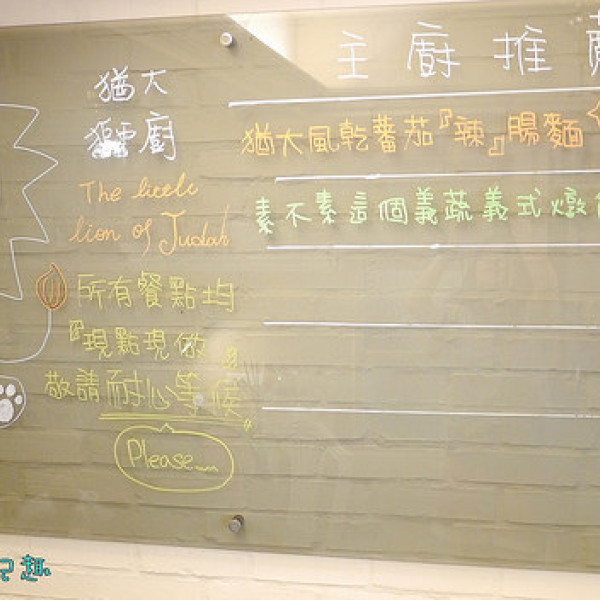 猶大
獅廚
The little
lion of Judah
所有餐點均
『現點現做』
敬請耐心等候
Please
主廚推薦
猶大風乾蕃茄『辣』腸麵
素不素這個義蔬義式燉
記趣